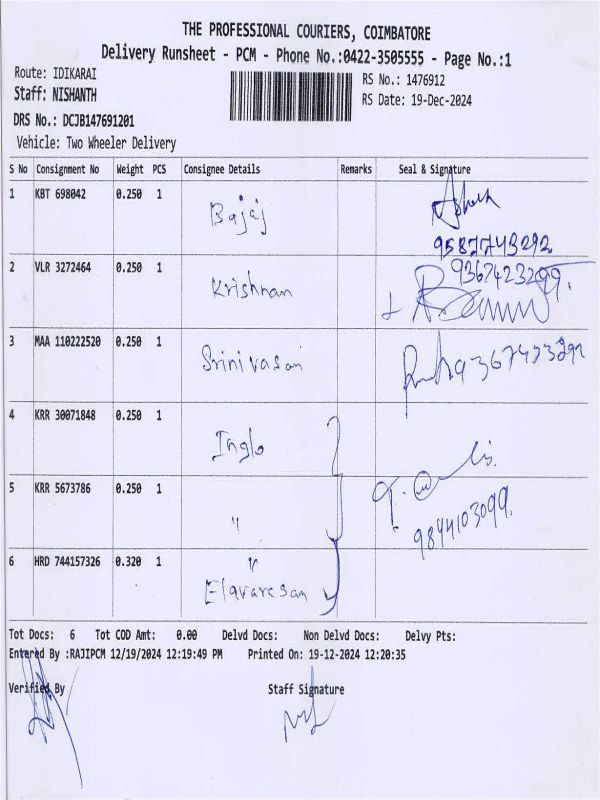 THE PROFESSIONAL COURIERS, COIMBATORE
Delivery Runsheet - PCM - Phone No.:0422-3505555 - Page No.:1
Route: IDIKARAI
RS No.: 1476912
Staff: NISHANTH
RS Date: 19-Dec-2024
DRS No.: DCJB147691201
Vehicle: Two Wheeler Delivery
S No Consignment No Weight PCS Consignee Details Remarks Seal & Signature
1 KBT 698042 0.250 1 Bajaj
9587743292
2 VLR 3272464 0.250 1 Krishnan 9367423299.
3 MAA 110222520 0.250 1 Srinivasan
4 KRR 30071848 0.250 1 Inglo
5 KRR 5673786 0.250 1 "
9844103099.
6 HRD 744157326 0.320 1 "
Elavaresan
Tot Docs: 6 Tot COD Amt: 0.00 Delvd Docs: Non Delvd Docs: Delvy Pts:
Entered By :RAJIPCM 12/19/2024 12:19:49 PM Printed On: 19-12-2024 12:20:35
Verified By Staff Signature